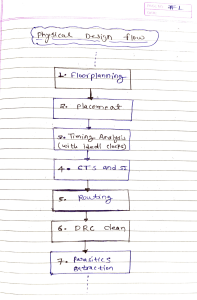 Physical Design flow
1. Floorplanning
2. Placement
3. Timing Analysis
(with Ideal clocks)
4. CTS and SI
5. Routing
6. DRC clean
7. Parasitics
extraction